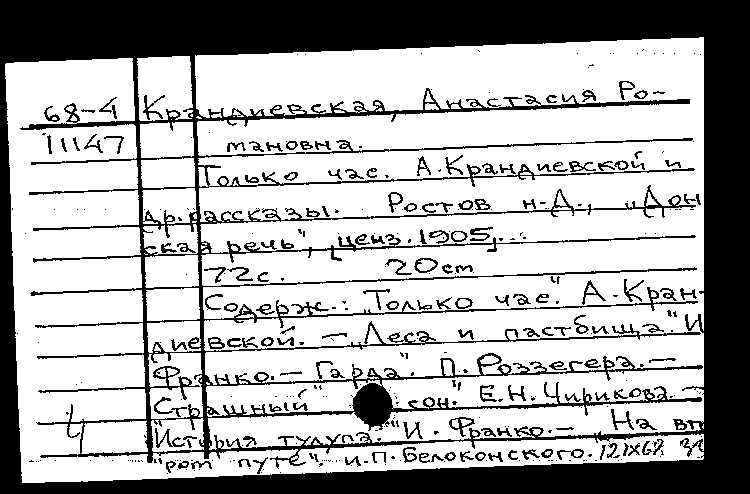 68-4 Крандиевская, Анастасия Ро-
11147 мановна.
Только час. А.Крандиевской и
др.рассказы. Ростов н-Д., "Дон
ская речь", [ценз.1905]...
72с. 20ст
Содерж.: "Только час." А.Кран-
диевской. — "Леса и пастбища." И
Франко. — Гарда". П. Роззегера. —
"Страшный сон." Е.Н.Чирикова. —
4 "История тулупа." И. Франко. — "На вт
"рот путе". И.П.Белоконского. 121х68